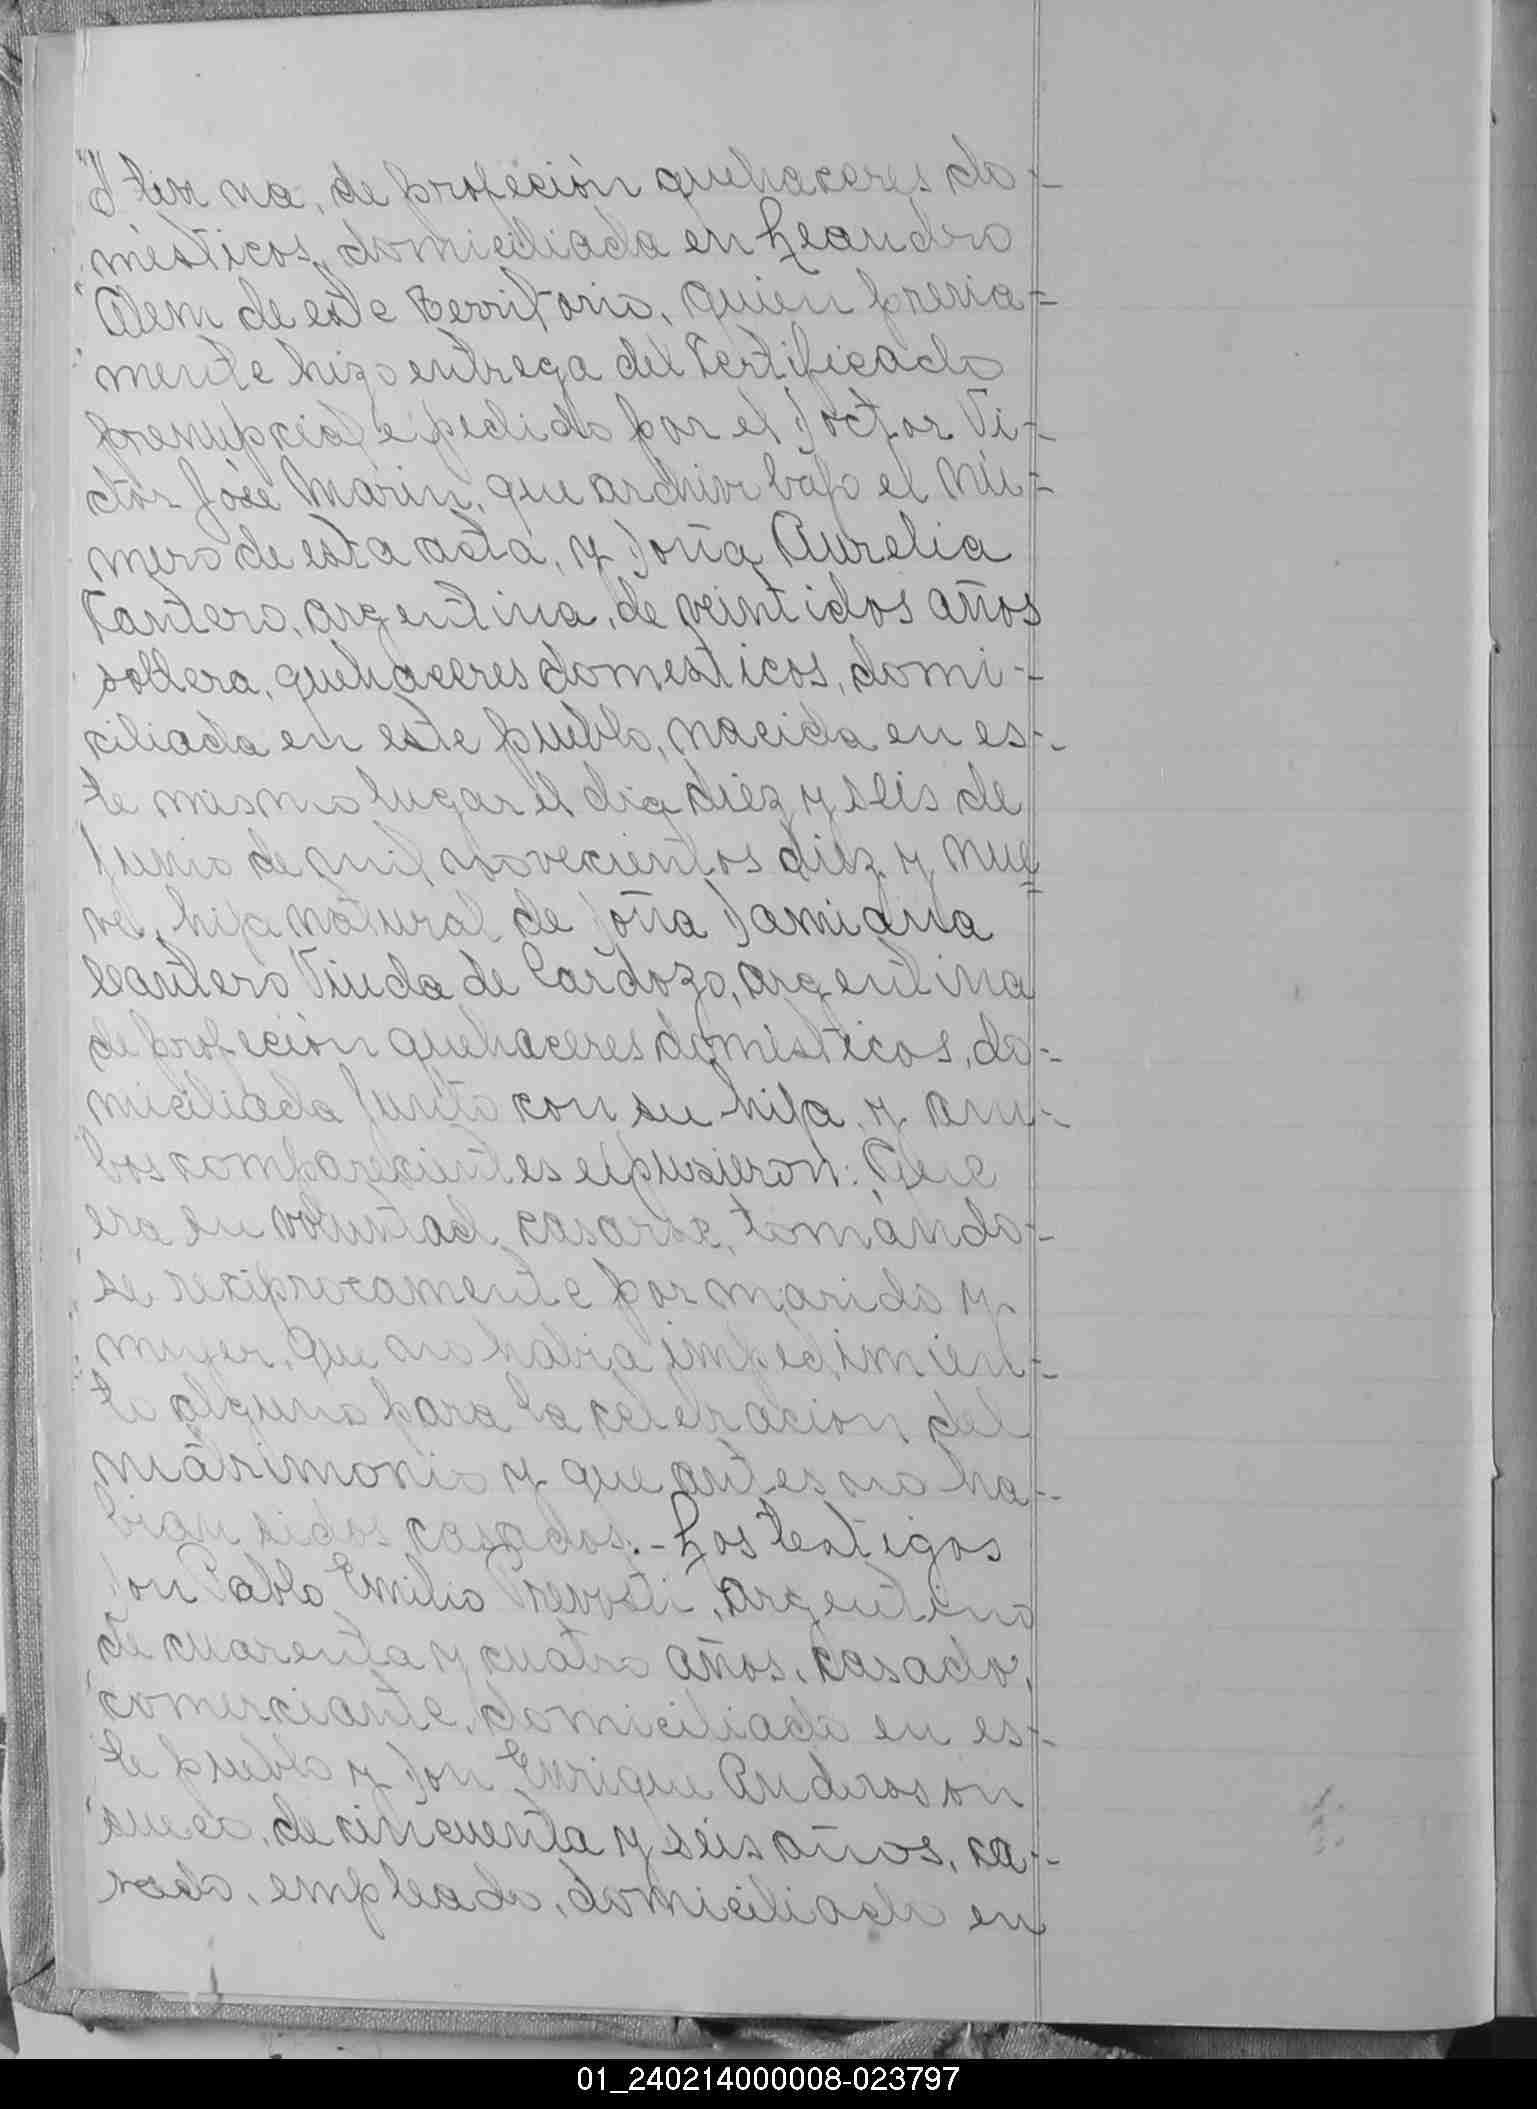 tina, de profeción quehaceres do-
mésticos, domiciliada en Leandro
Alem de este territorio, quien previa-
mente hizo entrega del Certificado
prenupcial expedido por el Doctor Vi-
ctor José Marin, que archivo bajo el nú-
mero de esta acta, y Doña Aurelia
Cantero, argentina, de veintidos años
soltera, quehaceres domesticos, domi-
ciliada en este pueblo, nacida en es-
te mismo lugar el dia diez y seis de
Junio de mil novecientos diez y nue
ve, hija natural de Doña Damiana
Cantero Viuda de Cardozo, argentina
de profeción quehaceres domésticos, do-
miciliada junto con su hija, y am-
bos comparecientes expusieron: Que
era su voluntad casarse, tomándo-
se reciprocamente por marido y
mujer, que no habia impedimien-
to alguno para la celebracion del
matrimonio y que antes no ha-
bian sidos casados.- Los testigos
Don Pablo Emilio Prevosti, argentino
de cuarenta y cuatro años, casado,
comerciante, domiciliado en es-
te pueblo y Don Enrique Anderoson
sueco, de cincuenta y seis años, ca-
sado, empleado, domiciliado en
01_240214000008-023797